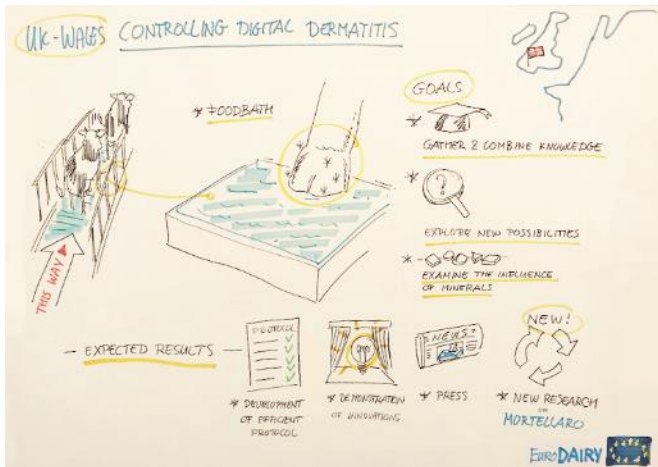 UK-WALES CONTROLLING DIGITAL DERMATITIS
* FOODBATH
THIS WAY
GOALS
*
GATHER & COMBINE KNOWLEDGE
*
?
EXPLORE NEW POSSIBILITIES
*
EXAMINE THE INFLUENCE
OF MINERALS
- EXPECTED RESULTS -
PROTOCOL
* DEVELOPMENT
OF EFFICIENT
PROTOCOL
* DEMONSTRATION
OF INNOVATIONS
NEWS
* PRESS
NEW!
* NEW RESEARCH
ON
MORTELLARO
EURODAIRY